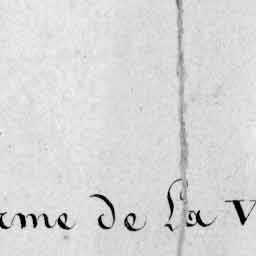 rme de La V